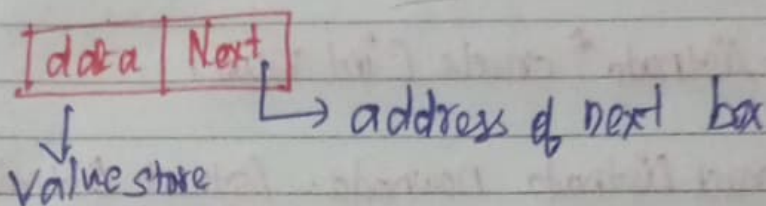 data | Next
address of next box
value store